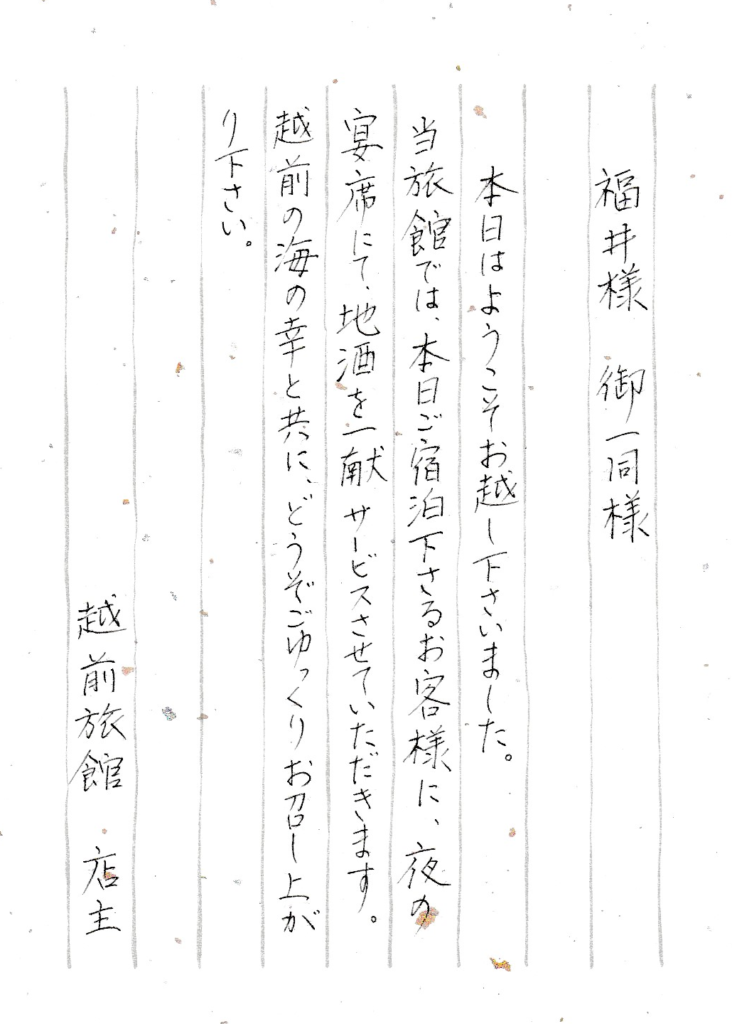 福井様　御一同様
本日はようこそお越し下さいました。
当旅館では、本日ご宿泊下さるお客様に、夜の
宴席にて、地酒を一献サービスさせていただきます。
越前の海の幸と共に、どうぞごゆっくりお召し上が
り下さい。
越前旅館　店主